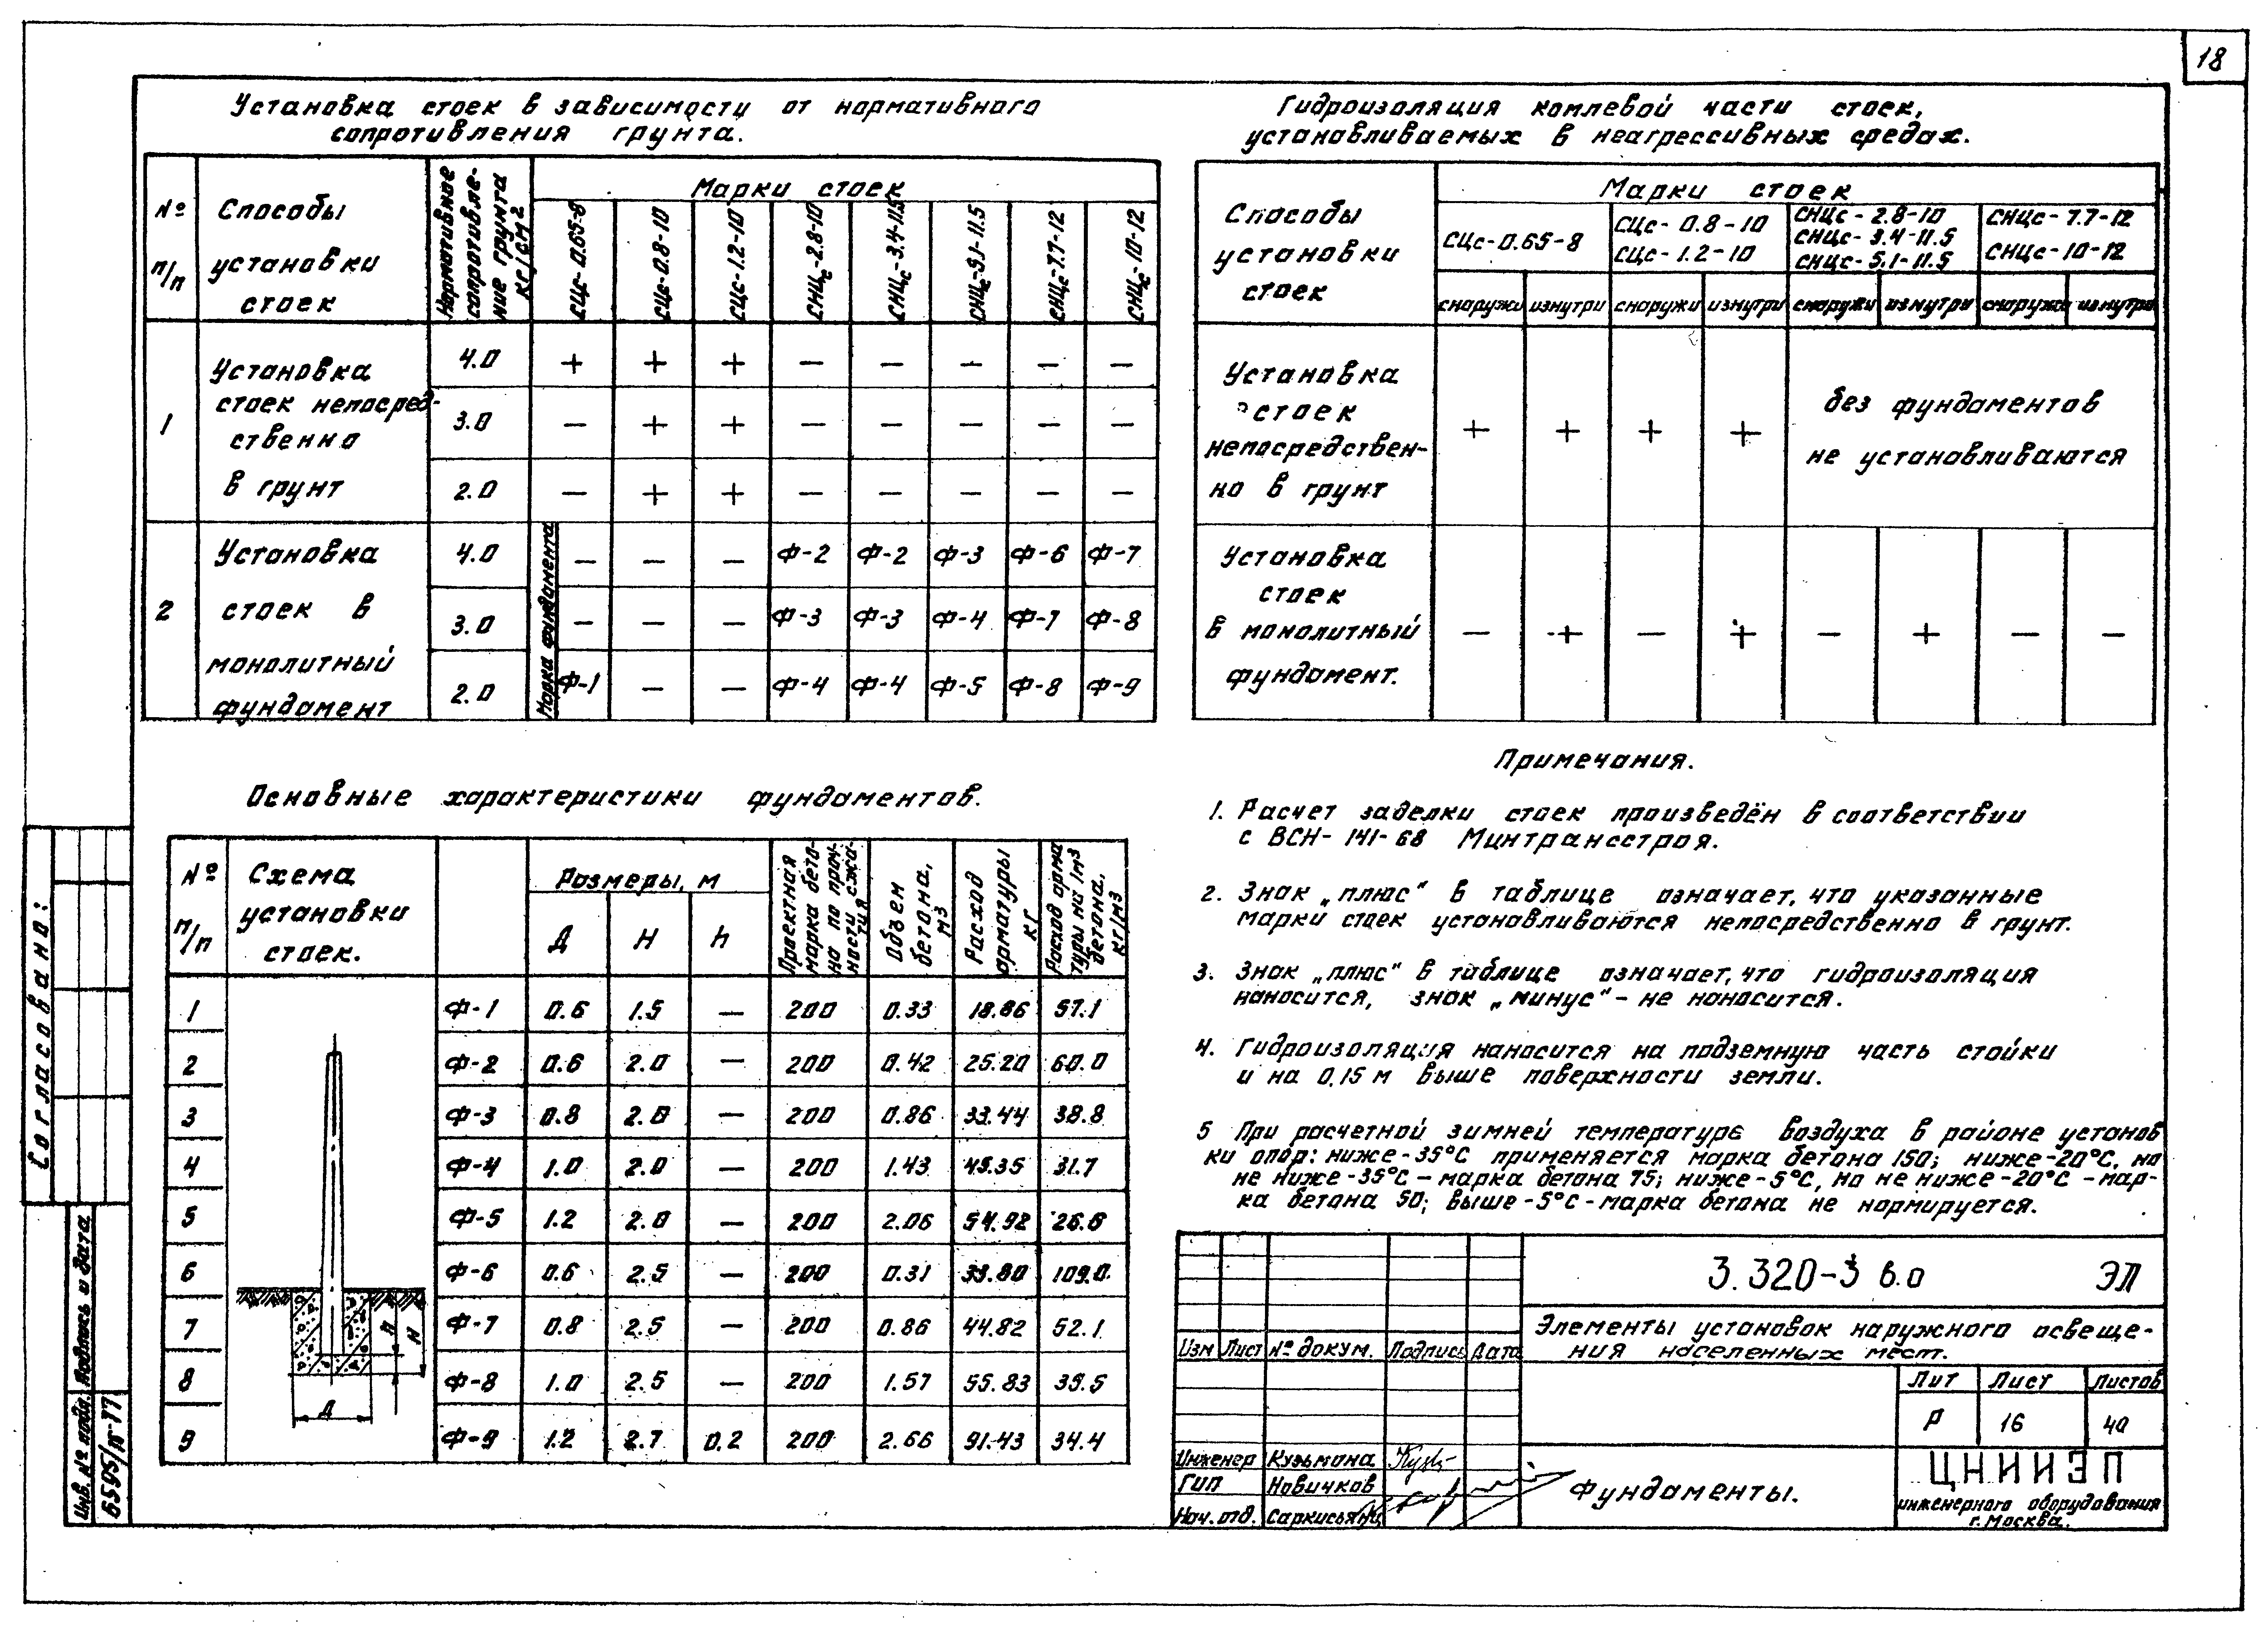 18
Установка стоек в зависимости от нормативного
сопротивления грунта.
№ п/п
Способы установки стоек
Нормативное сопротивление грунта кг/см2
Марки стоек
СЦс-0.65-8 СЦс-0.8-10 СЦс-1.2-10 СНЦс-2.8-10 СНЦс-3.4-11.5 СНЦс-5.1-11.5 СНЦс-7.7-12 СНЦс-10-12
1
Установка
стоек непосред-
ственно
в грунт
4.0 + + + — — — — —
3.0 — + + — — — — —
2.0 — + + — — — — —
2
Установка
стоек в
монолитный
фундамент
Марка фундамента
4.0 — — — Ф-2 Ф-2 Ф-3 Ф-6 Ф-7
3.0 — — — Ф-3 Ф-3 Ф-4 Ф-7 Ф-8
2.0 Ф-1 — — Ф-4 Ф-4 Ф-5 Ф-8 Ф-9
Гидроизоляция комлевой части стоек,
устанавливаемых в неагрессивных средах.
Способы
установки
стоек
Марки стоек
СЦс-0.65-8
СЦс-0.8-10
СЦс-1.2-10
СНЦс-2.8-10
СНЦс-3.4-11.5
СНЦс-5.1-11.5
СНЦс-7.7-12
СНЦс-10-12
снаружи изнутри снаружи изнутри снаружи изнутри снаружи изнутри
Установка
стоек
непосредствен-
но в грунт
+ + + +
без фундаментов
не устанавливаются
Установка
стоек
в монолитный
фундамент.
— + — + — + — —
Основные характеристики фундаментов.
№ п/п
Схема
установки
стоек.
Размеры, м
Д Н h
Проектная марка бетона по прочности сжатия
Объем бетона, м3
Расход арматуры кг
Расход арматуры на 1м3 бетона, кг/м3
1 Ф-1 0.6 1.5 — 200 0.33 18.86 57.1
2 Ф-2 0.6 2.0 — 200 0.42 25.20 60.0
3 Ф-3 0.8 2.0 — 200 0.86 33.44 38.8
4 Ф-4 1.0 2.0 — 200 1.43 45.35 31.7
5 Ф-5 1.2 2.0 — 200 2.06 54.92 26.6
6 Ф-6 0.6 2.5 — 200 0.31 33.80 109.0
7 Ф-7 0.8 2.5 — 200 0.86 44.82 52.1
8 Ф-8 1.0 2.5 — 200 1.57 55.83 35.5
9 Ф-9 1.2 2.7 0.2 200 2.66 91.43 34.4
h
Н
Д
Примечания.
1. Расчет заделки стоек произведён в соответствии
с ВСН-141-68 Минтрансстроя.
2. Знак „плюс“ в таблице означает, что указанные
марки стоек устанавливаются непосредственно в грунт.
3. Знак „плюс“ в таблице означает, что гидроизоляция
наносится, знак „минус“ - не наносится.
4. Гидроизоляция наносится на подземную часть стойки
и на 0,15 м выше поверхности земли.
5 При расчетной зимней температуре воздуха в районе установ
ки опор: ниже -35°С применяется марка бетона 150; ниже -20°С, но
не ниже -35°С – марка бетона 75; ниже -5°С, но не ниже -20°С - мар-
ка бетона 50; выше -5°С - марка бетона не нормируется.
3.320-3 в.0 ЭЛ
Элементы установок наружного освеще-
ния населенных мест.
Изм Лист № докум. Подпись Дата
Лит Лист Листов
Р 16 40
Инженер Кузьмина
ГИП Новичков
Нач. отд.
Фундаменты.
ЦНИИЭП
инженерного оборудования
г. Москва.
Согласовано:
Подпись и дата
Инв. № подл.